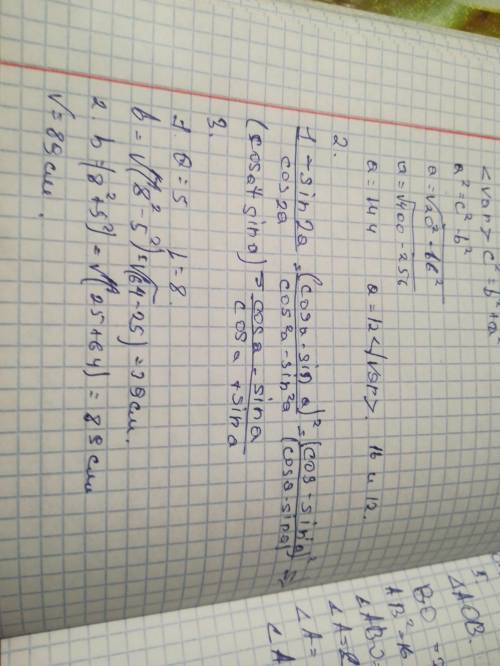 <var> c² = b² + a²
a² = c² - b²
a = √20² - 16²
a = √400 - 256
a = 144 a = 12 </var>. 16 и 12.
2.
1 - sin2a / cos2a = (cos a - sin a)² / cos²a - sin²a = (cos - sin a)² / (cos a - sin a)
(cosa + sin a) = cosa - sina / cosa + sina
3.
1. a = 5 L = 8.
b = √(8² - 5²) = √(64 - 25) = 39 см.
2. b = (8² + 5²) = √(25 + 64) = 89 см
√ = 89 см.
△AOB.
BO =
AB² = 16
∠ABO
∠A =
∠A =
∠A